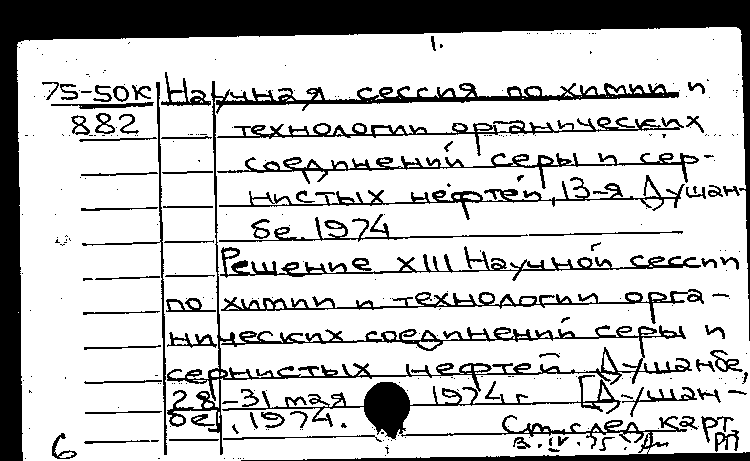 1.
75-50к Научная сессия по химии и
882 технологии органических
соединений серы и сер-
нистых нефтей, 13-я. Душан-
бе. 1974
Решение XIII Научной сессии
по химии и технологии орга-
нических соединений серы и
сернистых нефтей. Душанбе,
28-31 мая 1974 г. [Душан-
бе], 1974.
См. след. карт.
6 РП